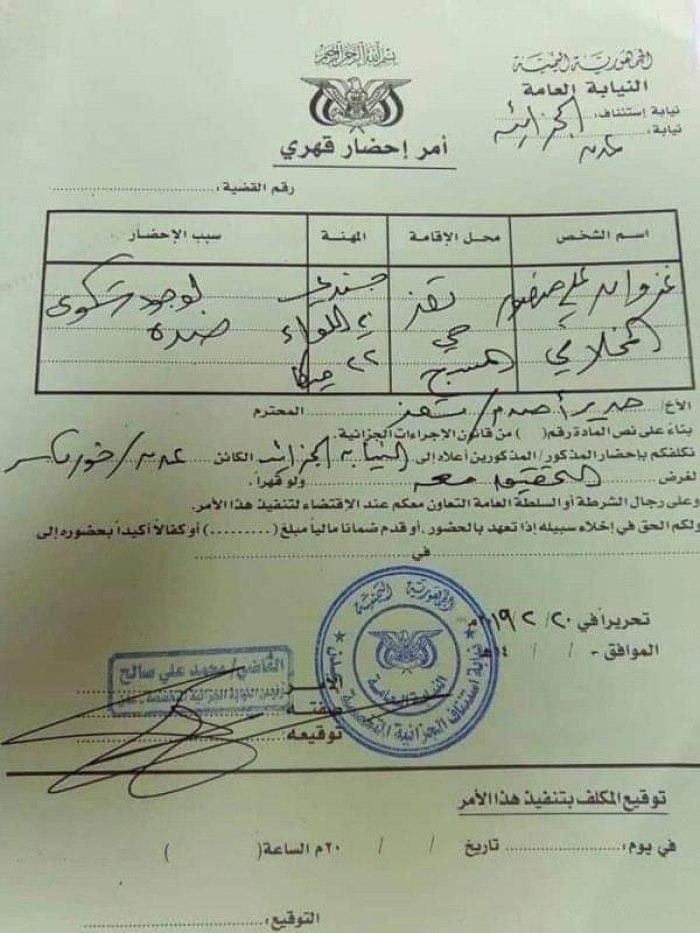 بسم الله الرحمن الرحيم
الجمهورية اليمنية
النيابة العامة
نيابة إستئناف: الجزائية
نيابة: عدن
أمر إحضار قهري
رقم القضية:
اسم الشخص محل الإقامة المهنة سبب الإحضار
غزوان علي منصور تعز جندي لوجود شكوى
المخلافي حي في اللواء ضده
المسبح ٢٢ ميكا
الأخ/ مدير أمن م/ تعز المحترم
بناءً على نص المادة رقم ( ) من قانون الإجراءات الجزائية.
نكلفكم بإحضار المذكور/ المذكورين أعلاه إلى النيابة الجزائية الكائن عدن/ خور مكسر
لغرض التحقيق معه ولو قهراً.
وعلى رجال الشرطة أو السلطة العامة التعاون معكم عند الإقتضاء لتنفيذ هذا الأمر.
ولكم الحق في إخلاء سبيله إذا تعهد بالحضور. أو قدم ضمانا مالياً مبلغ (.........) أو كفالاً أكيداً بحضوره إلى
في
تحريراً في ٢٠/ ٢/ ٢٠١٩م
الموافق - / / ١٤هـ
الجمهورية اليمنية
النيابة العامة
نيابة استئناف الجزائية المتخصصة عدن
القاضي/ محمد علي صالح
رئيس النيابة الجزائية المتخصصة - عدن
صفته
توقيعه:
توقيع المكلف بتنفيذ هذا الأمر
في يوم: تاريخ / / ٢٠م الساعة( )
التوقيع: